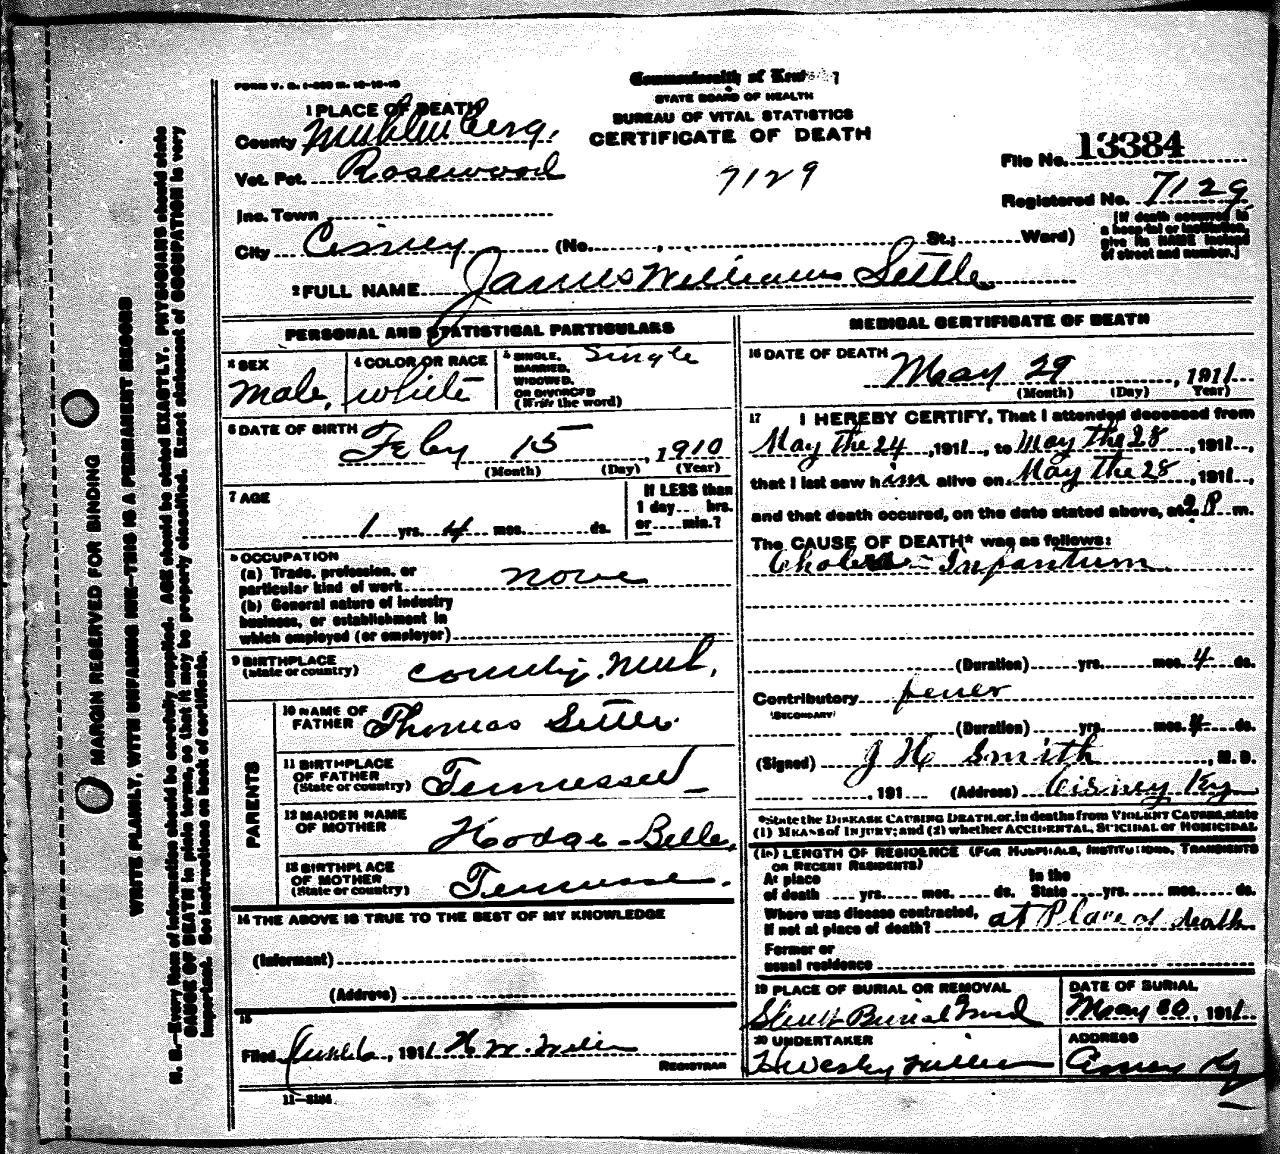 FORM V. S.
Commonwealth of Kentucky
STATE BOARD OF HEALTH
BUREAU OF VITAL STATISTICS
CERTIFICATE OF DEATH
7129
File No. 13384
Registered No. 7129
[If death occurred in
a hospital or institution,
give its NAME instead
of street and number.]
1 PLACE OF DEATH
County Muhlenberg.
Vot. Pct. Rosewood
Inc. Town
City Cisney (No. , St.; Ward)
2 FULL NAME James William Settle
PERSONAL AND STATISTICAL PARTICULARS
3 SEX
Male.
4 COLOR OR RACE
White
5 SINGLE,
MARRIED,
WIDOWED,
OR DIVORCED
(Write the word)
Single
6 DATE OF BIRTH
Feby 15, 1910
(Month) (Day) (Year)
7 AGE
1 yrs. 4 mos. ds.
If LESS than
1 day hrs.
or min.?
8 OCCUPATION
(a) Trade, profession, or
particular kind of work none
(b) General nature of industry
business, or establishment in
which employed (or employer)
9 BIRTHPLACE
(State or country)
County. Muh.
PARENTS
10 NAME OF
FATHER Thomas Settle
11 BIRTHPLACE
OF FATHER
(State or country) Tennessee
12 MAIDEN NAME
OF MOTHER Hodge-Belle,
13 BIRTHPLACE
OF MOTHER
(State or country) Tennesse.
14 THE ABOVE IS TRUE TO THE BEST OF MY KNOWLEDGE
(Informant)
(Address)
15
Filed , 1911
REGISTRAR
11—3184
MEDICAL CERTIFICATE OF DEATH
16 DATE OF DEATH
May 29, 1911
(Month) (Day) Year)
17 I HEREBY CERTIFY, That I attended deceased from
May the 24, 1911, to May the 28, 1911,
that I last saw him alive on May the 28, 1911,
and that death occured, on the date stated above, at 2 P. m.
The CAUSE OF DEATH* was as follows:
Cholera-Infantum
(Duration) yrs. mos. 4 ds.
Contributory fever
(SECONDARY)
(Duration) yrs. mos. 4 ds.
(Signed) J H Smith, M. D.
, 191 (Address) Cisney Ky
*State the DISEASE CAUSING DEATH, or, in deaths from VIOLENT CAUSES, state
(1) MEANS of INJURY; and (2) whether ACCIDENTAL, SUICIDAL or HOMICIDAL
(18) LENGTH OF RESIDENCE (FOR HOSPITALS, INSTITUTIONS, TRANSIENTS
OR RECENT RESIDENTS)
At place of death yrs. mos. ds. In the State yrs. mos. ds.
Where was disease contracted,
if not at place of death? at Place of death
Former or
usual residence
19 PLACE OF BURIAL OR REMOVAL
Burial Grond
DATE OF BURIAL
May 30, 1911
20 UNDERTAKER
H Wesley Miller
ADDRESS
Cisney Ky
MARGIN RESERVED FOR BINDING
WRITE PLAINLY, WITH UNFADING INK—THIS IS A PERMANENT RECORD
N. B.—Every item of information should be carefully supplied. AGE should be stated EXACTLY. PHYSICIANS should state
CAUSE OF DEATH in plain terms, so that it may be properly classified. Exact statement of OCCUPATION is very
important. See instructions on back of certificate.